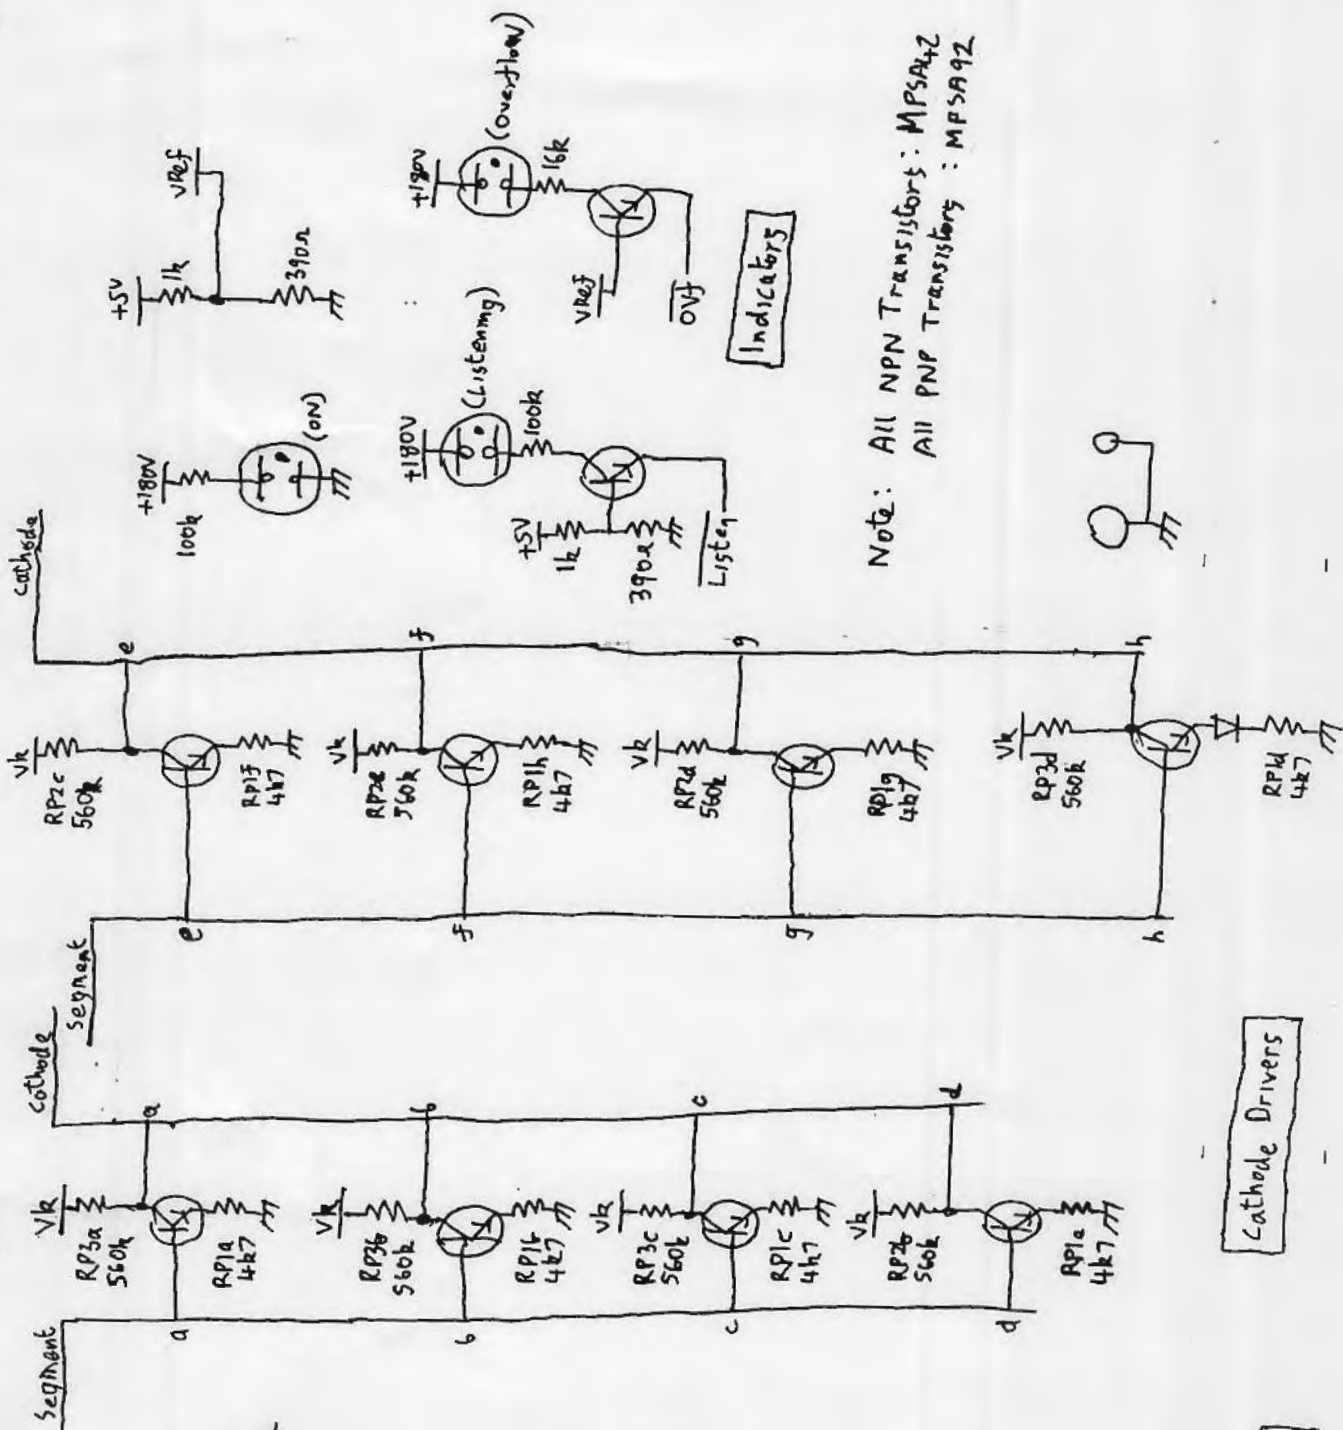 Segment
Cathode
a
a
Vk
RP3a
560k
RP1a
4k7
b
b
Vk
RP3b
560k
RP1b
4k7
c
c
Vk
RP3c
560k
RP1c
4k7
d
d
Vk
RP2b
560k
RP1e
4k7
Segment
Cathode
e
e
Vk
RP2c
560k
RP1f
4k7
f
f
Vk
RP2e
560k
RP1h
4k7
g
g
Vk
RP2d
560k
RP1g
4k7
h
h
Vk
RP3d
560k
RP1d
4k7
Cathode Drivers
+180V
100k
(ON)
+5V
1k
VRef
390Ω
+180V
(Listening)
100k
+5V
1k
390Ω
Listen
+180V
(Overflow)
16k
VRef
OVf
Indicators
Note: All NPN Transistors: MPSA42
All PNP Transistors : MPSA92